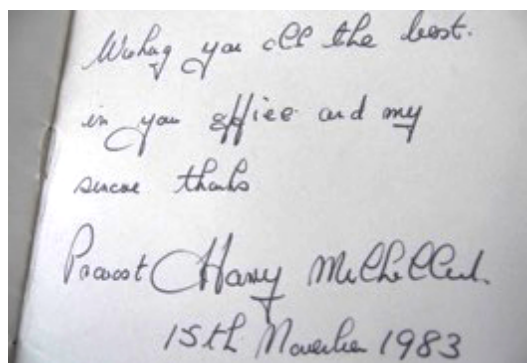 Wishing you all the best.
in your office and my
sincere thanks
Provost Harry
15th November 1983